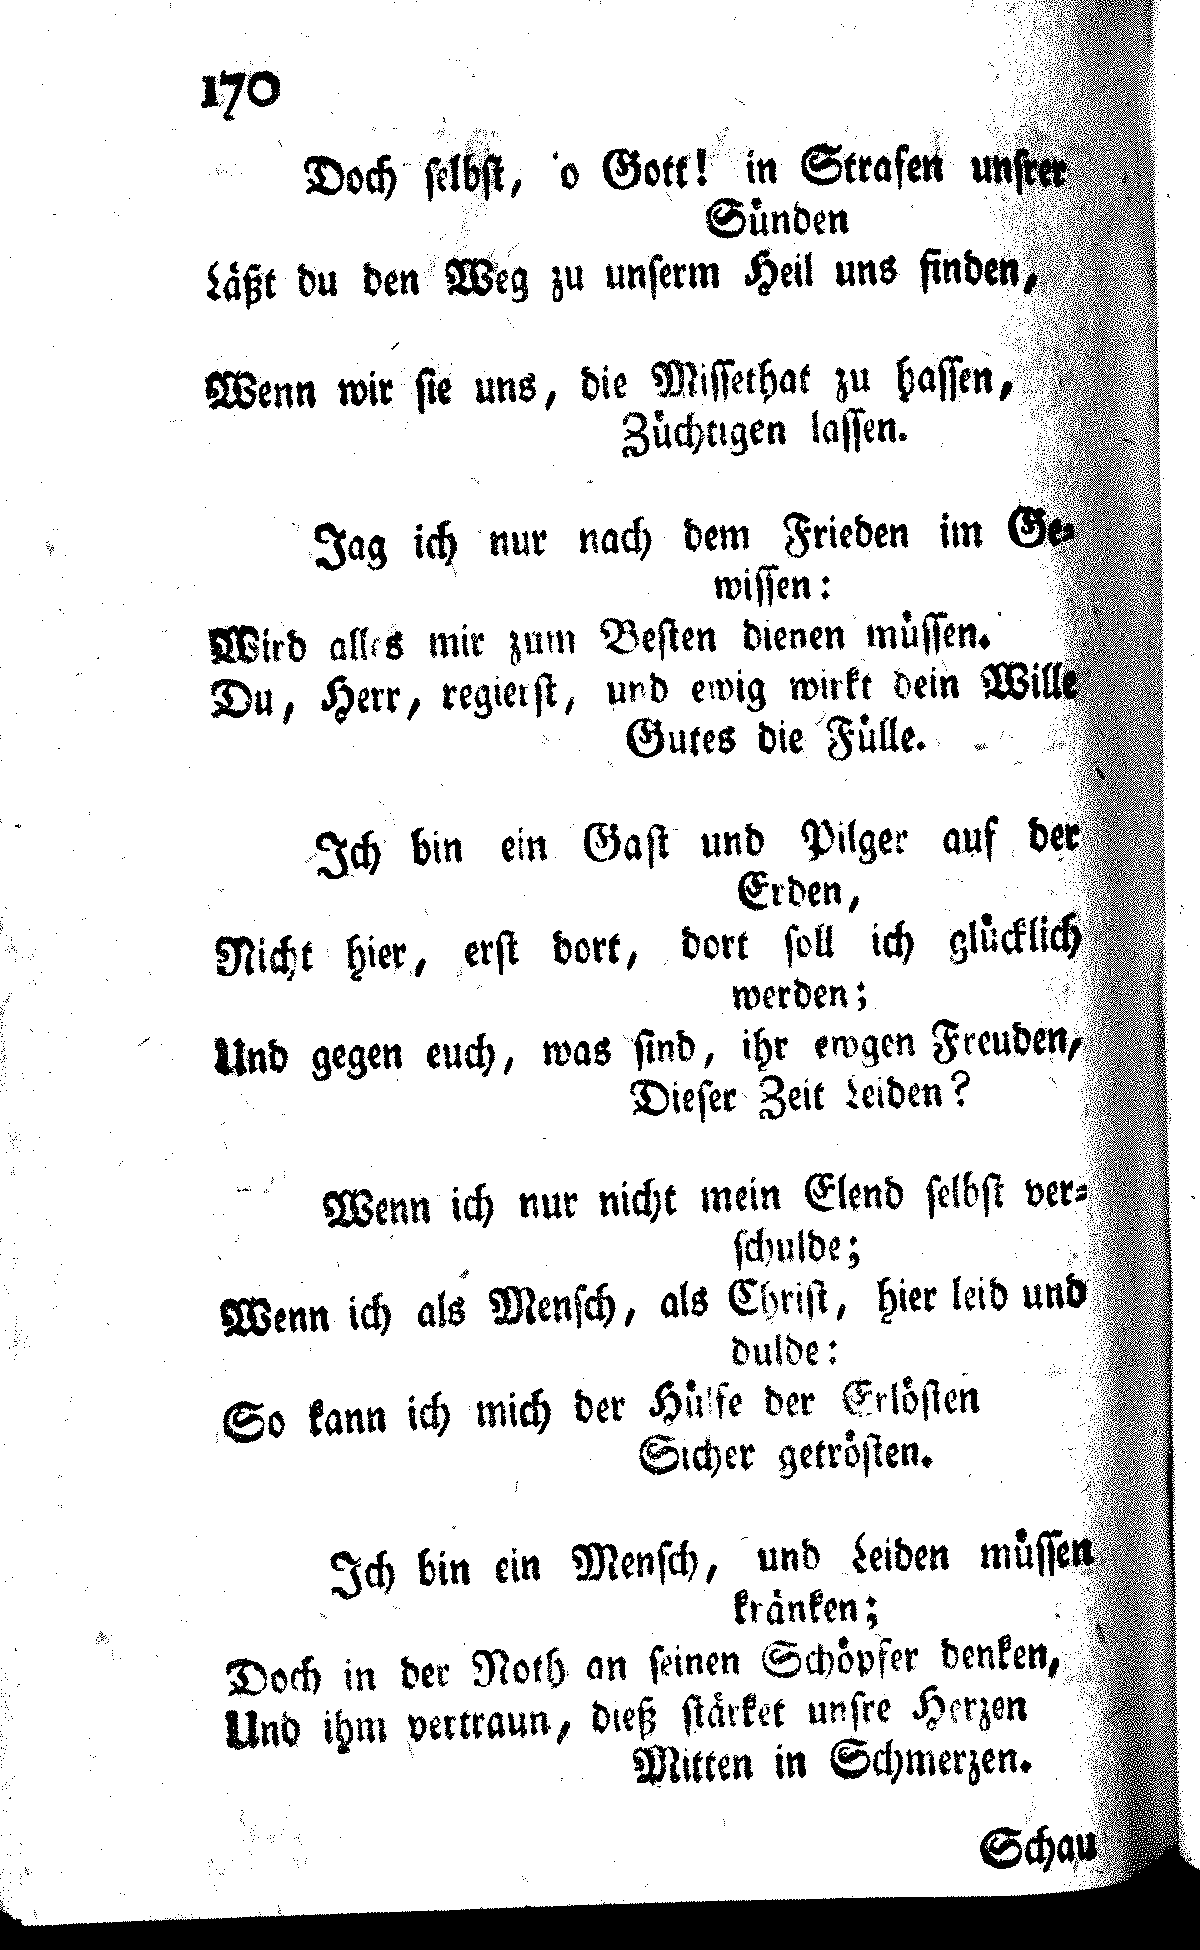 170
Doch selbst, o Gott! in Strafen unsrer
Sünden
Läßt du den Weg zu unserm Heil uns finden,
Wenn wir sie uns, die Missethat zu hassen,
Züchtigen lassen.
Jag ich nur nach dem Frieden im Ge-
wissen:
Wird alles mir zum Besten dienen müssen.
Du, Herr, regierst, und ewig wirkt dein Wille
Gutes die Fülle.
Ich bin ein Gast und Pilger auf der
Erden,
Nicht hier, erst dort, dort soll ich glücklich
werden;
Und gegen euch, was sind, ihr ewgen Freuden,
Dieser Zeit Leiden?
Wenn ich nur nicht mein Elend selbst ver-
schulde;
Wenn ich als Mensch, als Christ, hier leid und
dulde:
So kann ich mich der Hülfe der Erlösten
Sicher getrösten.
Ich bin ein Mensch, und Leiden müssen
kränken;
Doch in der Noth an seinen Schöpfer denken,
Und ihm vertraun, dieß stärket unsre Herzen
Mitten in Schmerzen.
Schau